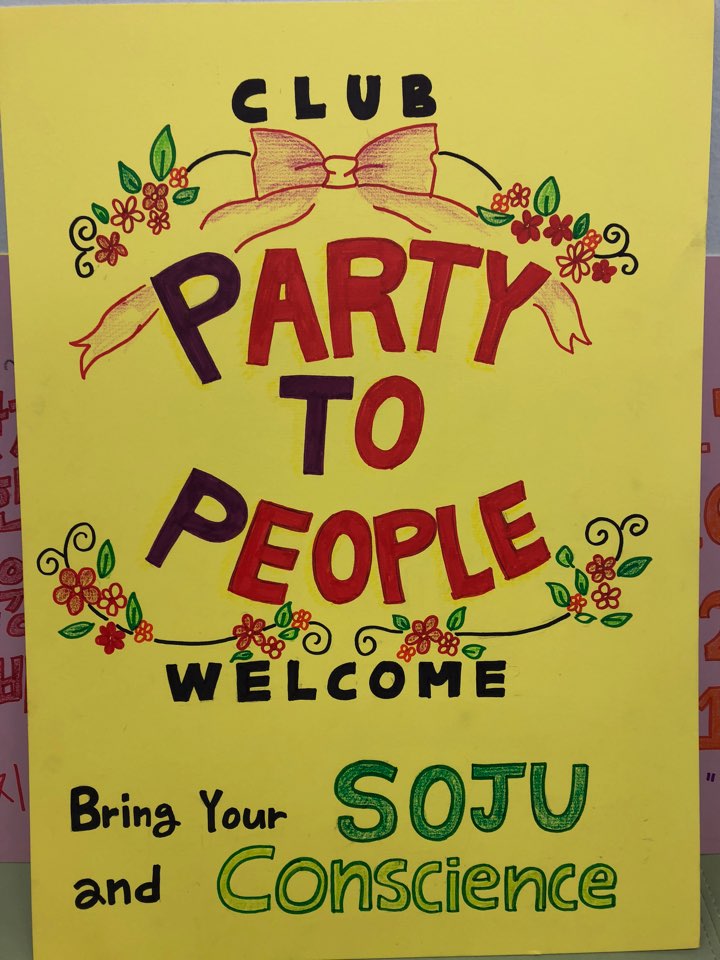 CLUB
PARTY
TO
PEOPLE
WELCOME
Bring Your SOJU
and Conscience